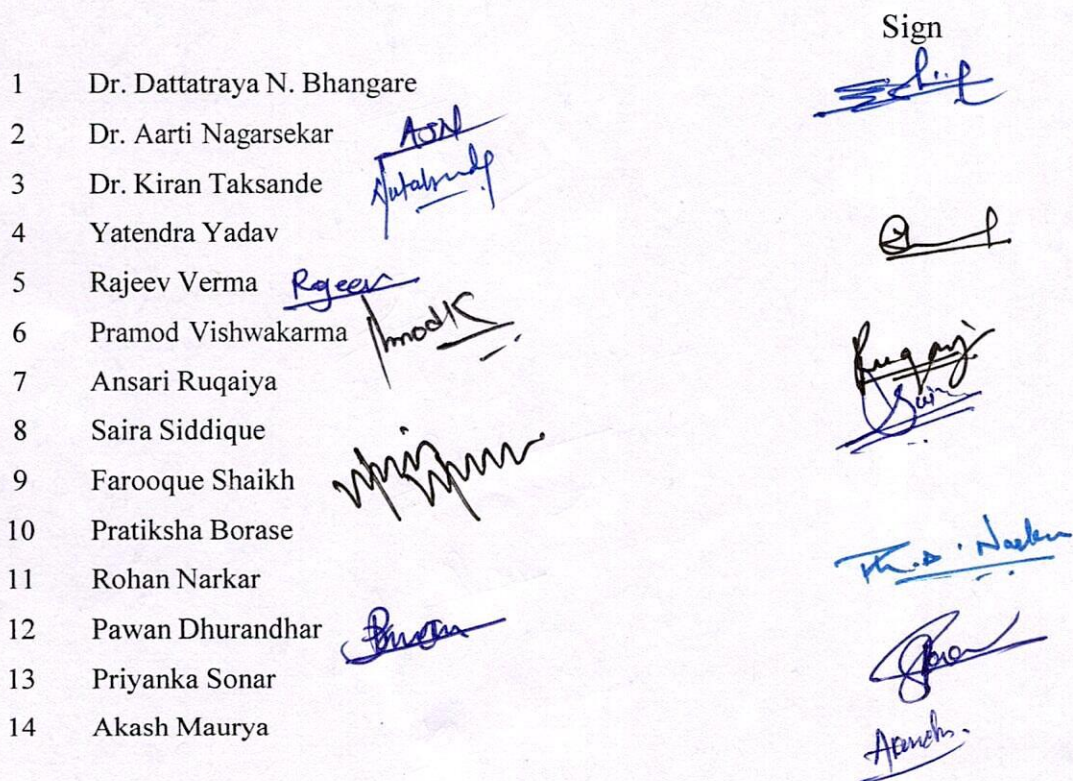 Sign
1 Dr. Dattatraya N. Bhangare
2 Dr. Aarti Nagarsekar AJN
3 Dr. Kiran Taksande
4 Yatendra Yadav
5 Rajeev Verma Rajeev
6 Pramod Vishwakarma
7 Ansari Ruqaiya
8 Saira Siddique
9 Farooque Shaikh
10 Pratiksha Borase
11 Rohan Narkar
12 Pawan Dhurandhar
13 Priyanka Sonar
14 Akash Maurya